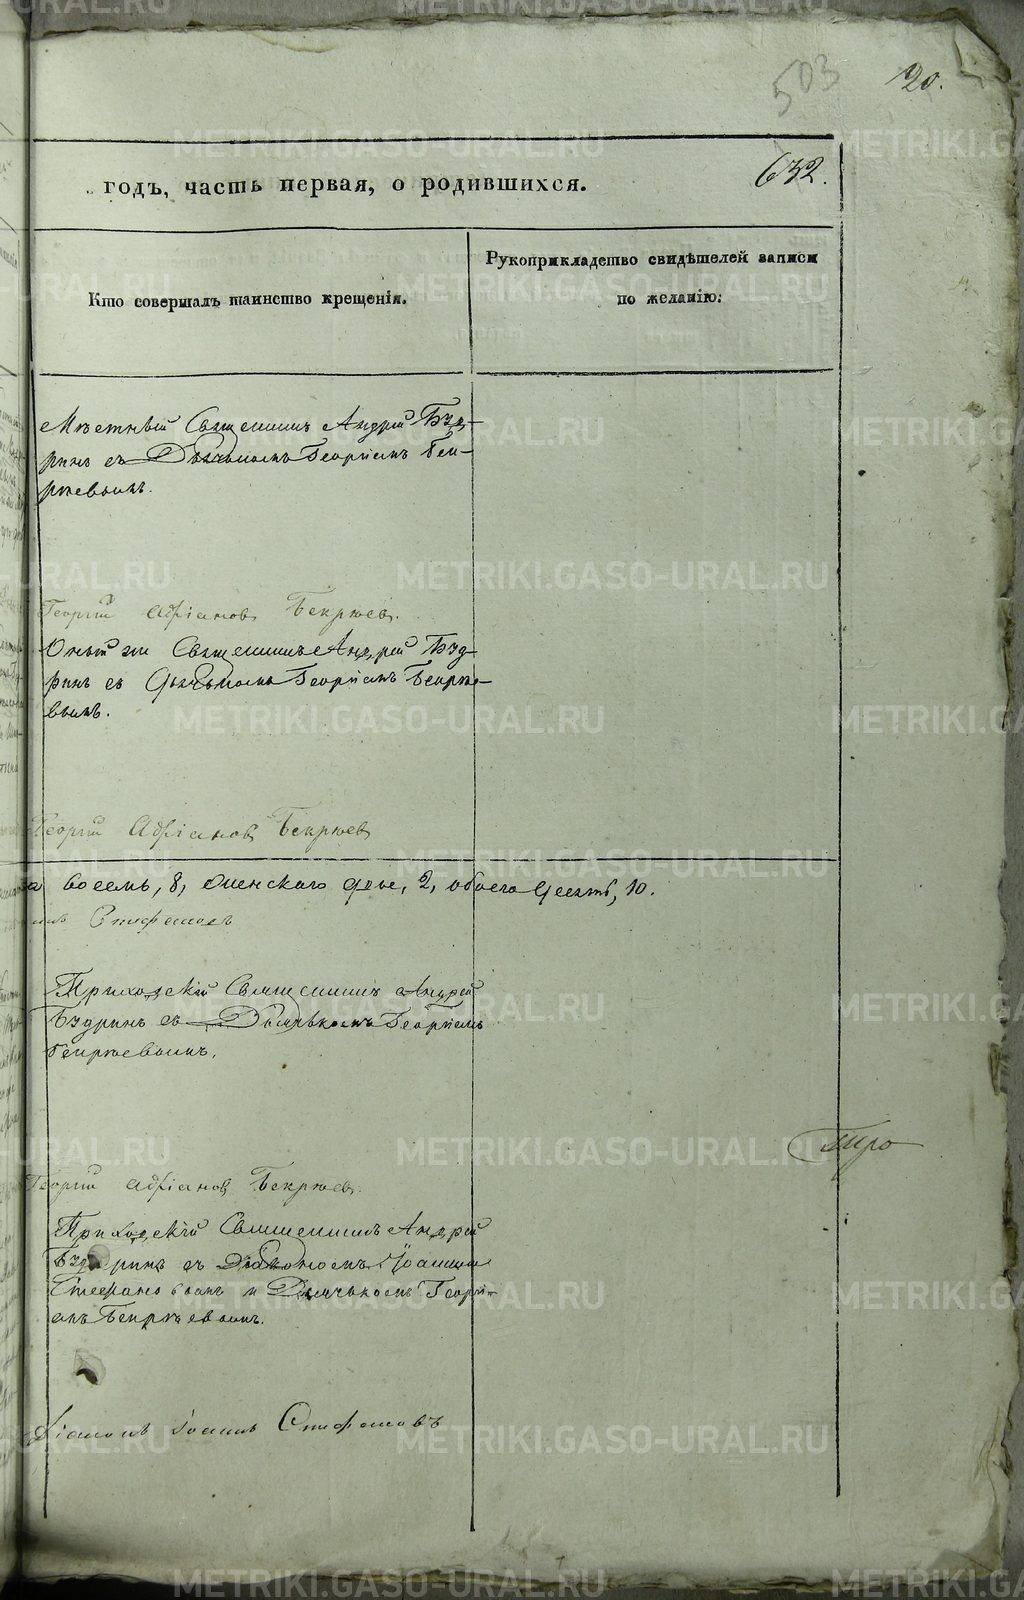 503
20.
годъ, часть первая, о родившихся.
632.
Кто совершалъ таинство крещенія.
Рукоприкладство свидѣтелей записи
по желанію:
Мѣстный Священникъ Андрей Бзд-
ринъ съ Дьячькомъ Георгіемъ Бек-
ряевымъ.
Георгій Адріановъ Бекряев
Оный же Священникъ Андрей Бзд-
ринъ съ Дьячькомъ Георгіемъ Бекряе-
вымъ.
Георгій Адріановъ Бекряев
восемь, 8, женскаго двѣ, 2, обоего десять, 10.
Стефановъ
Приходскій Священникъ Андрей
Бздринъ съ Дьячькомъ Георгіемъ
Бекряевымъ.
Георгій Адріановъ Бекряев
Приходскій Священникъ Андрей
Бздринъ съ Діакономъ Іоанномъ
Стефановымъ и Дьячькомъ Георгі-
емъ Бекряевымъ.
Діаконъ Іоаннъ Стефановъ
METRIKI.GASO-URAL.RU